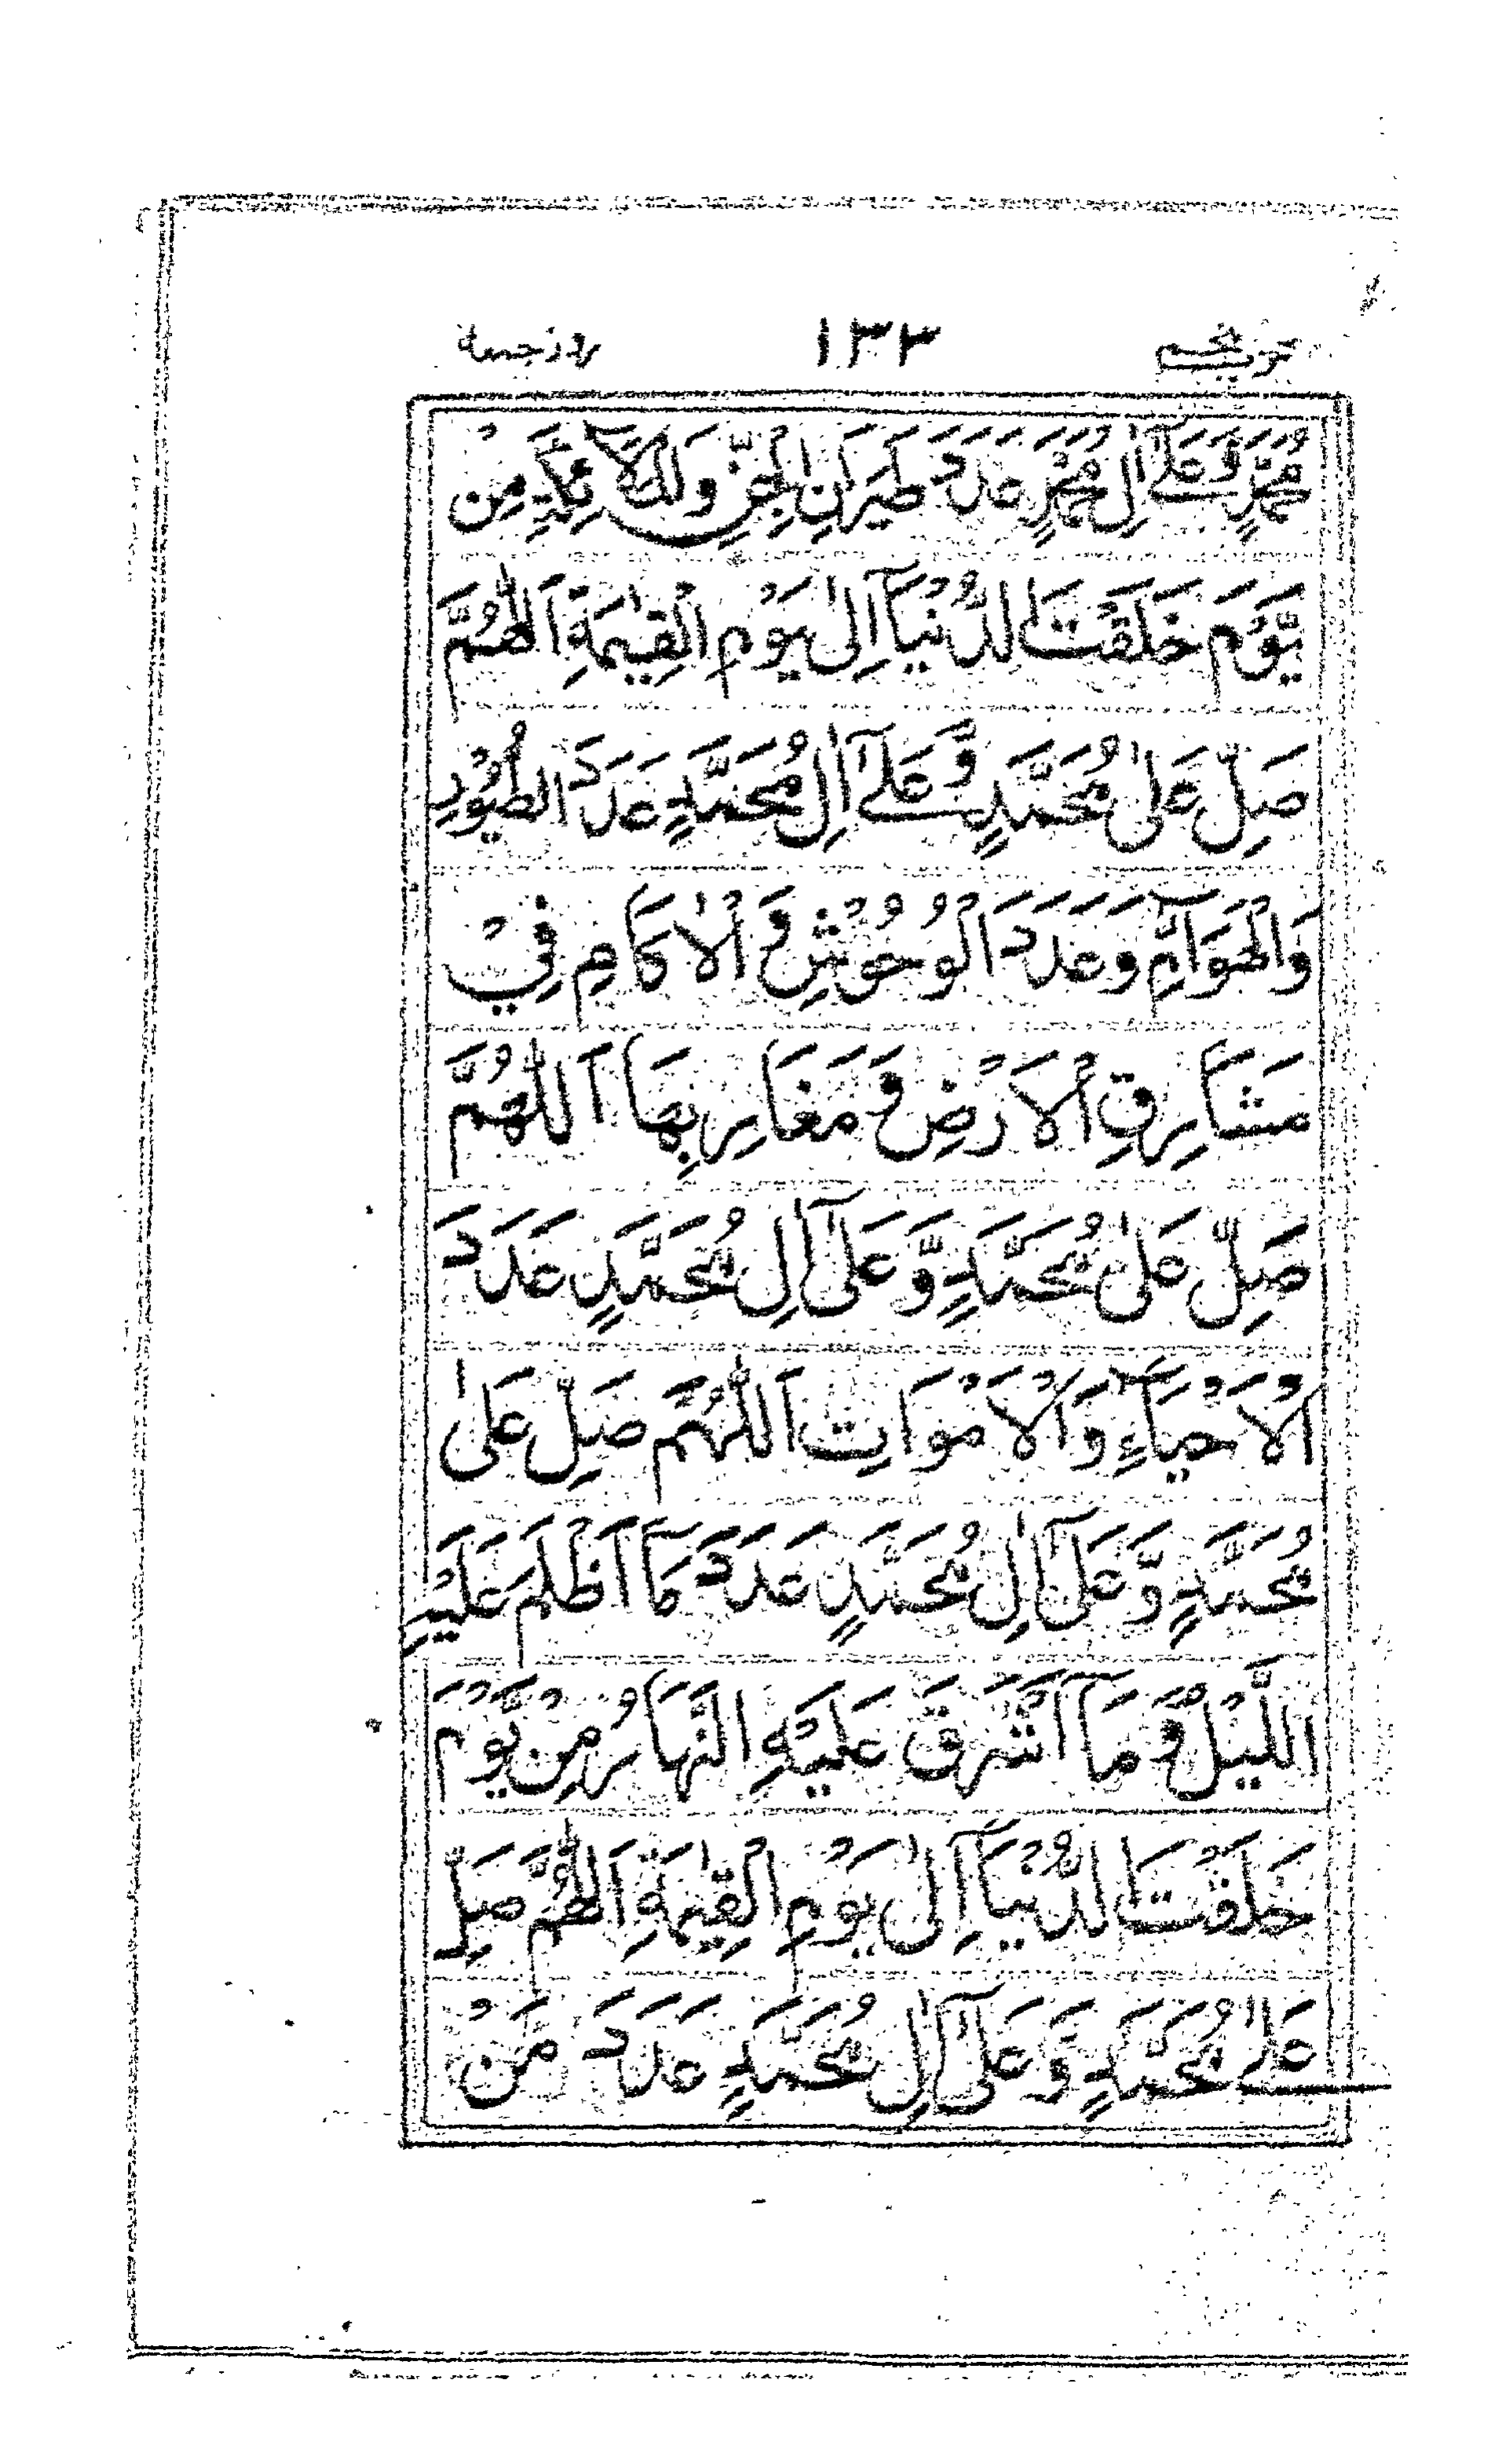 حزب پنجم ۱۳۳ روز جمعه
مُحَمَّدٍ وَّعَلٰٓى اٰلِ مُحَمَّدٍ عَدَدَ طَيَرَانِ الْجِنِّ وَالْمَلٰٓئِكَةِ مِنْ
يَّوْمَ خَلَقْتَ الدُّنْيَآ اِلٰى يَوْمِ الْقِيٰمَةِ اَللّٰهُمَّ
صَلِّ عَلٰى مُحَمَّدٍ وَّعَلٰٓى اٰلِ مُحَمَّدٍ عَدَدَ الطُّيُوْرِ
وَالْهَوَآمِّ وَعَدَدَ الْوُحُوْشِ وَ الْاٰكَامِ فِيْ
مَشَارِقِ الْاَرْضِ وَ مَغَارِبِهَا اَللّٰهُمَّ
صَلِّ عَلٰى مُحَمَّدٍ وَّعَلٰٓى اٰلِ مُحَمَّدٍ عَدَدَ
الْاَحْيَآءِ وَالْاَمْوَاتِ اَللّٰهُمَّ صَلِّ عَلٰى
مُحَمَّدٍ وَّعَلٰٓى اٰلِ مُحَمَّدٍ عَدَدَ مَآ اَظْلَمَ عَلَيْهِ
اللَّيْلُ وَ مَآ اَشْرَقَ عَلَيْهِ النَّهَارُ مِنْ يَّوْمَ
خَلَقْتَ الدُّنْيَآ اِلٰى يَوْمِ الْقِيٰمَةِ اَللّٰهُمَّ صَلِّ
عَلٰى مُحَمَّدٍ وَّعَلٰٓى اٰلِ مُحَمَّدٍ عَدَدَ مَنْ